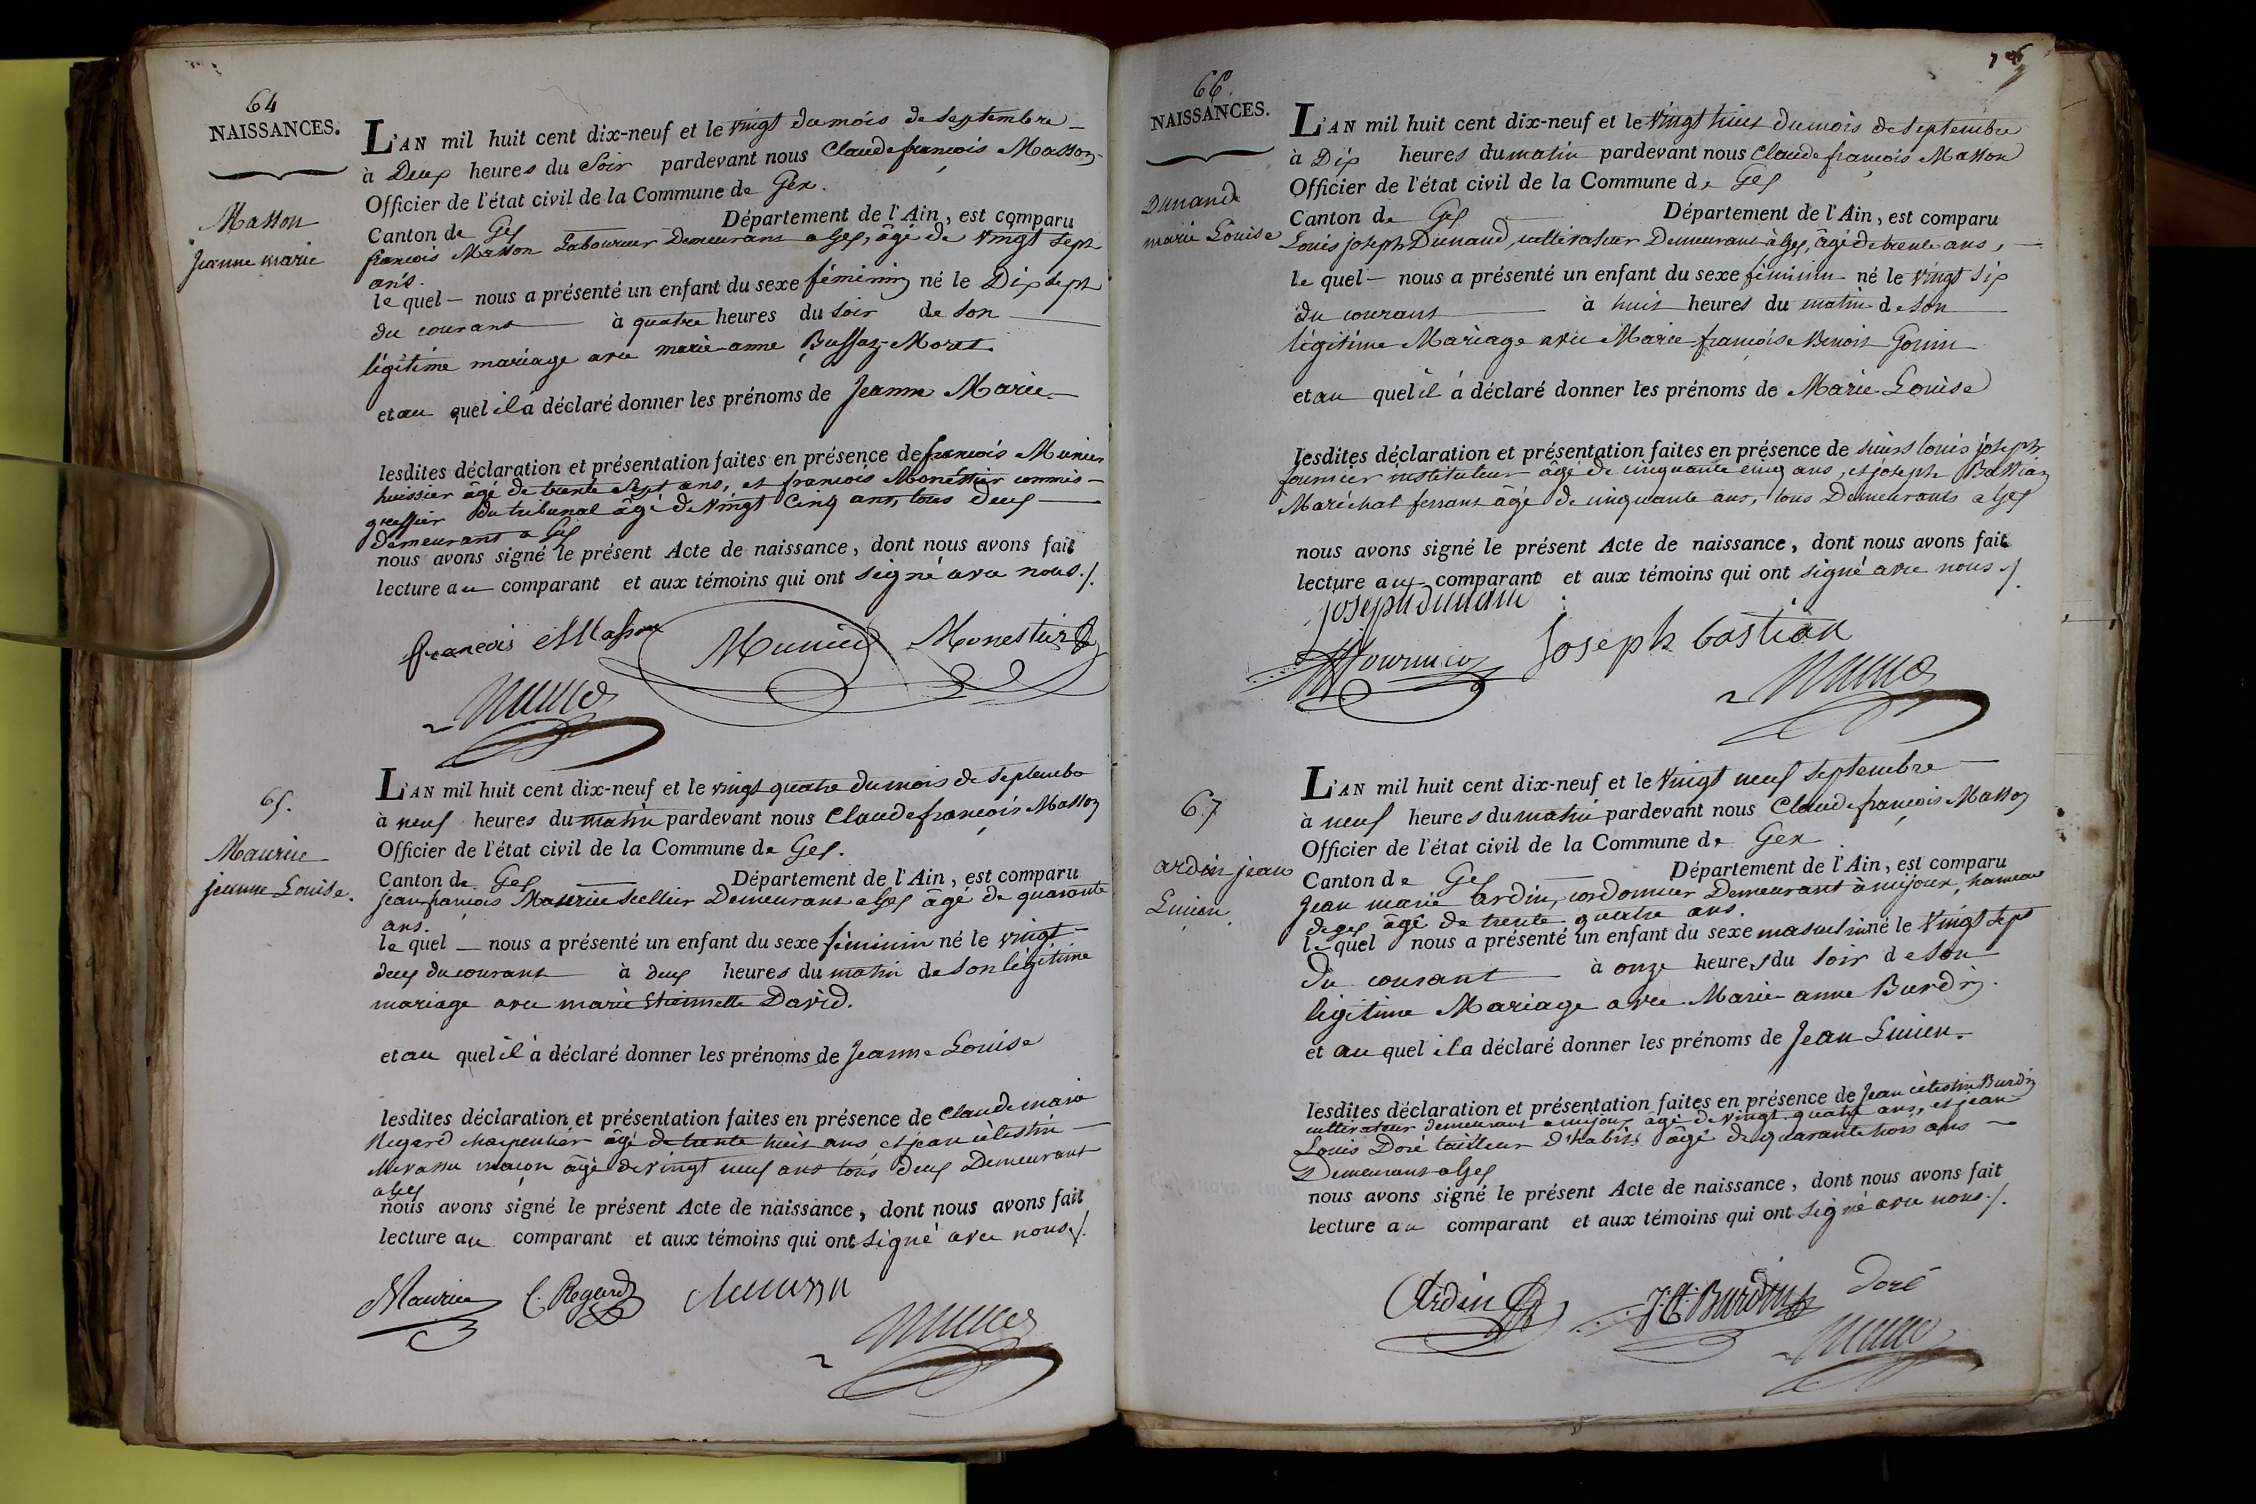 64
NAISSANCES.
Masson
Jeanne marie
L'AN mil huit cent dix-neuf et le vingt du mois de septembre
à Deux heures du Soir pardevant nous Claude françois Masson
Officier de l'état civil de la Commune de Gex.
Canton de Gex Département de l'Ain, est comparu
françois Masson Laboureur Demeurant a Gex, âgé de vingt sept
ans.
le quel nous a présenté un enfant du sexe féminin né le Dix sept
du courant à quatre heures du soir de son
légitime mariage avec marie anne Bussoz Moret.
et au quel il a déclaré donner les prénoms de Jeanne Marie
lesdites déclaration et présentation faites en présence de françois Munier
huissier âgé de trente sept ans, et françois Monestier commis
greffier du tribunal âgé de vingt Cinq ans, tous deux
demeurant a Gex
nous avons signé le présent Acte de naissance, dont nous avons fait
lecture au comparant et aux témoins qui ont signé avec nous ./.
françois Masson Munier Monestier
65.
Maurice
jeanne Louise.
L'AN mil huit cent dix-neuf et le vingt quatre du mois de septembre
à neuf heures du matin pardevant nous Claude françois Masson
Officier de l'état civil de la Commune de Gex.
Canton de Gex Département de l'Ain, est comparu
jean françois Maurice Sellier Demeurant a Gex âgé de quarante
ans.
le quel nous a présenté un enfant du sexe féminin né le vingt
deux du courant à deux heures du matin de son légitime
mariage avec marie David.
et au quel il a déclaré donner les prénoms de Jeanne Louise
lesdites déclaration et présentation faites en présence de Claude marie
Regard charpentier âgé de trente huit ans et jean célestin
maçon âgé de vingt neuf ans tous deux Demeurant
a Gex
nous avons signé le présent Acte de naissance, dont nous avons fait
lecture au comparant et aux témoins qui ont signé avec nous ./.
Maurice C. Regard
66.
NAISSANCES.
Dunand
marie Louise
L'AN mil huit cent dix-neuf et le vingt huit du mois de septembre
à Dix heures du matin pardevant nous Claude françois Masson
Officier de l'état civil de la Commune de Gex
Canton de Gex Département de l'Ain, est comparu
Louis joseph Dunand, cultivateur Demeurant à Gex, âgé de trente ans,
le quel nous a présenté un enfant du sexe féminin né le vingt six
du courant à huit heures du matin de son
légitime Mariage avec Marie françoise Benoit Gonin
et au quel il a déclaré donner les prénoms de Marie Louise
lesdites déclaration et présentation faites en présence de sieurs louis joseph
fournier instituteur âgé de cinquante cinq ans, et joseph Bastian
Maréchal ferrant âgé de cinquante ans, tous Demeurants a Gex
nous avons signé le présent Acte de naissance, dont nous avons fait
lecture au comparant et aux témoins qui ont signé avec nous ./.
joseph dunant
fournier joseph bastian
67
ardin jean
Lucien.
L'AN mil huit cent dix-neuf et le vingt neuf septembre
à neuf heures du matin pardevant nous Claude françois Masson
Officier de l'état civil de la Commune de Gex
Canton de Gex Département de l'Ain, est comparu
Jean marie Ardin, cordonnier Demeurant à mijoux, hameau
de gex âgé de trente quatre ans.
le quel nous a présenté un enfant du sexe masculin né le vingt sept
du courant à onze heures du soir de son
légitime Mariage avec Marie anne Burdin.
et au quel il a déclaré donner les prénoms de Jean Lucien.
lesdites déclaration et présentation faites en présence de Jean célestin Burdin
cultivateur demeurant a mijoux âgé de vingt quatre ans, et jean
Louis Doré tailleur d'habits âgé de quarante trois ans
Demeurant a Gex
nous avons signé le présent Acte de naissance, dont nous avons fait
lecture au comparant et aux témoins qui ont signé avec nous ./.
Ardin J.C. Burdin doré